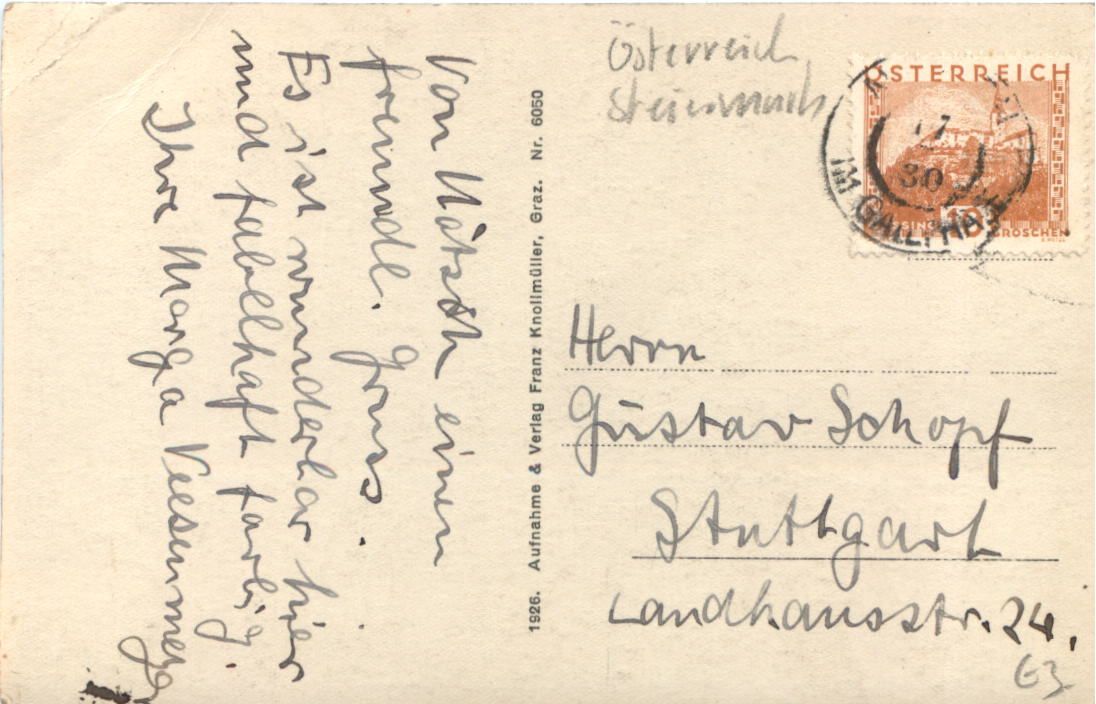 Von Mötsch einen
freundl. Gruss.
Es ist wunderbar hier
und fabelhaft farbig.
Ihre Marga
1926. Aufnahme & Verlag Franz Knollmüller, Graz. Nr. 6050
Österreich
Steiermark
ÖSTERREICH
17
30
IM
GROSCHEN
Herrn
Gustav Schopf
Stuttgart
Landhausstr. 24.